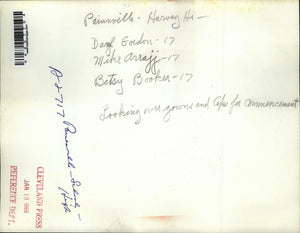 Painsville - Harvey Hi -
Daryl Gordon - 17
Mike Arrajj - 17
Betsy Booker - 17
Looking over gowns and Caps for commencement
A-2717 Painsville - Schools - High
CLEVELAND PRESS
JAN 19 1966
REFERENCE DEPT.